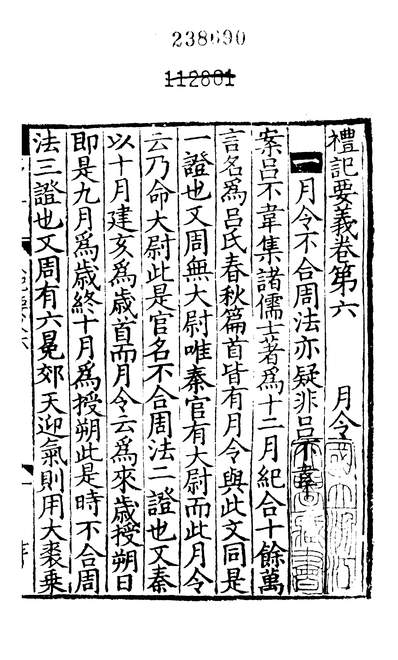 238690
112801
禮記要義卷第六 月令
一 月令不合周法亦疑非呂不韋
案呂不韋集諸儒士著爲十二月紀合十餘萬
言名爲呂氏春秋篇首皆有月令與此文同是
一證也又周無大尉唯秦官有大尉而此月令
云乃命大尉此是官名不合周法二證也又秦
以十月建亥爲歲首而月令云爲來歲授朔日
即是九月爲歲終十月爲授朔此是時不合周
法三證也又周有六冕郊天迎氣則用大裘乗